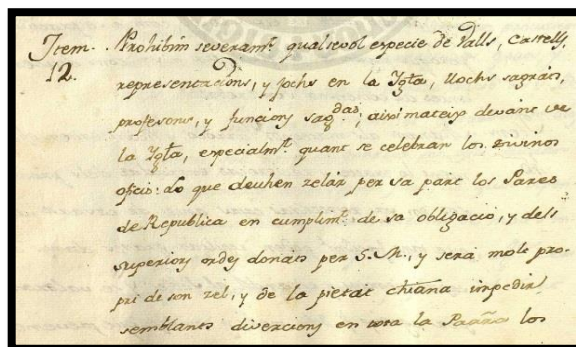 Item. Prohibim severamt. qualsevol especie de Valls, Castells,
12. representacions, y jochs en la Igla, llochs sagrats,
professons, y funcions sagdas, aixi mateix devant de
la Igla, especialmt. quant se celebran los Divinos
oficis: lo que deuhen zelar per sa part los Pares
de Republica en cumplimt. de sa obligació, y dels
superiors ordes donats per S. M., y será molt pro-
pri de son zel, y de la pietat chtiana impedir
semblants diversions en tota la los